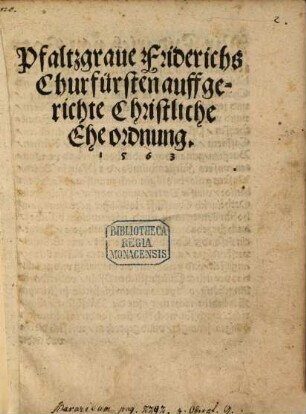 2.
Pfaltzgraue Friderichs
Churfürsten auffge-
richte Christliche
Eheordnung.
1563
BIBLIOTHECA
REGIA
MONACENSIS